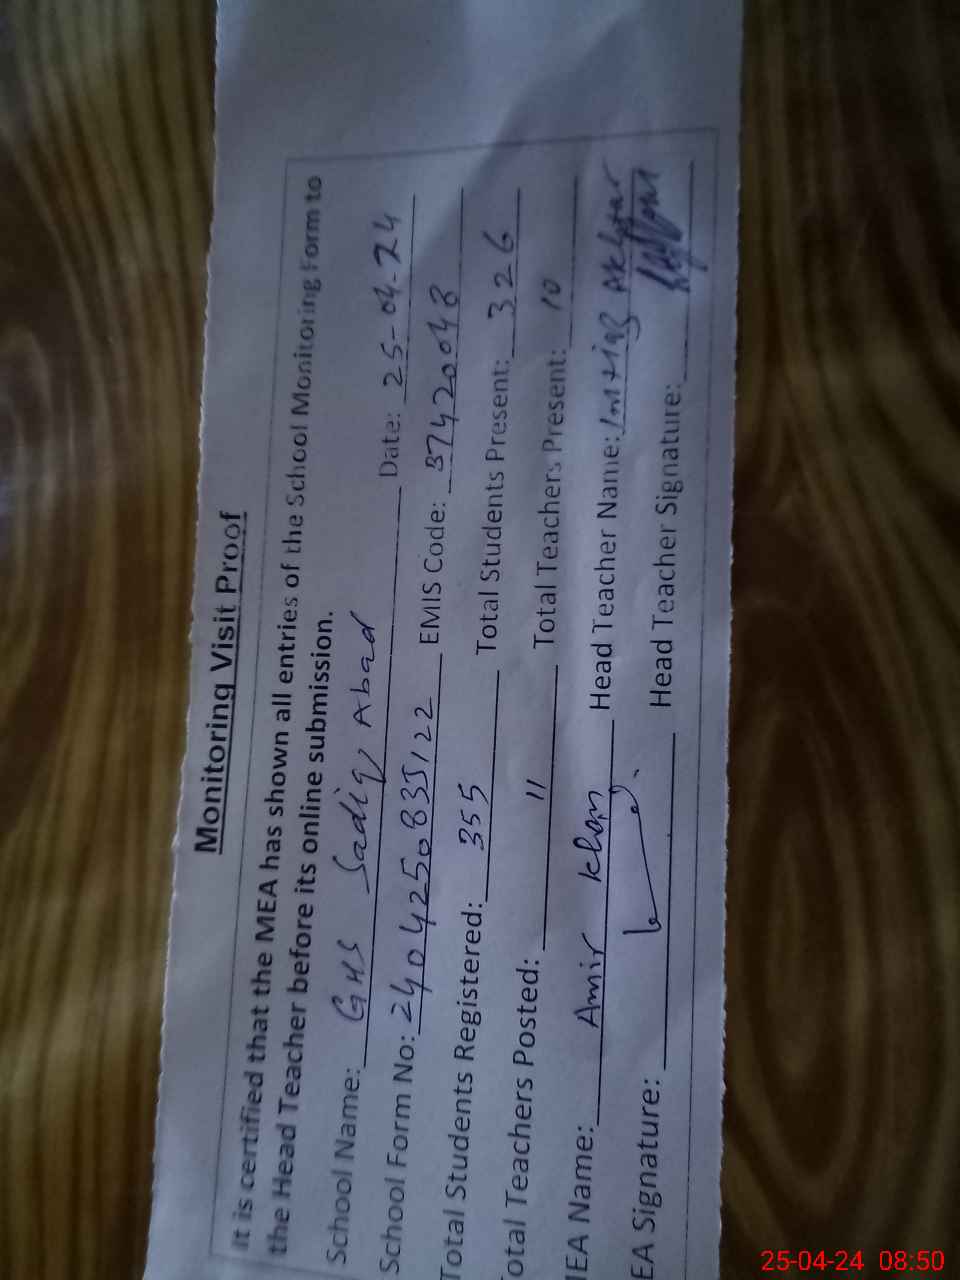 Monitoring Visit Proof
It is certified that the MEA has shown all entries of the School Monitoring Form to
the Head Teacher before its online submission.
School Name: GHS Sadiq Abad Date: 25-04-24
School Form No: 240425083522 EMIS Code: 37420048
Total Students Registered: 355 Total Students Present: 326
Total Teachers Posted: 11 Total Teachers Present: 10
MEA Name: Amir khan Head Teacher Name: Imtiaz Akhtar
EA Signature: Head Teacher Signature:
25-04-24 08:50